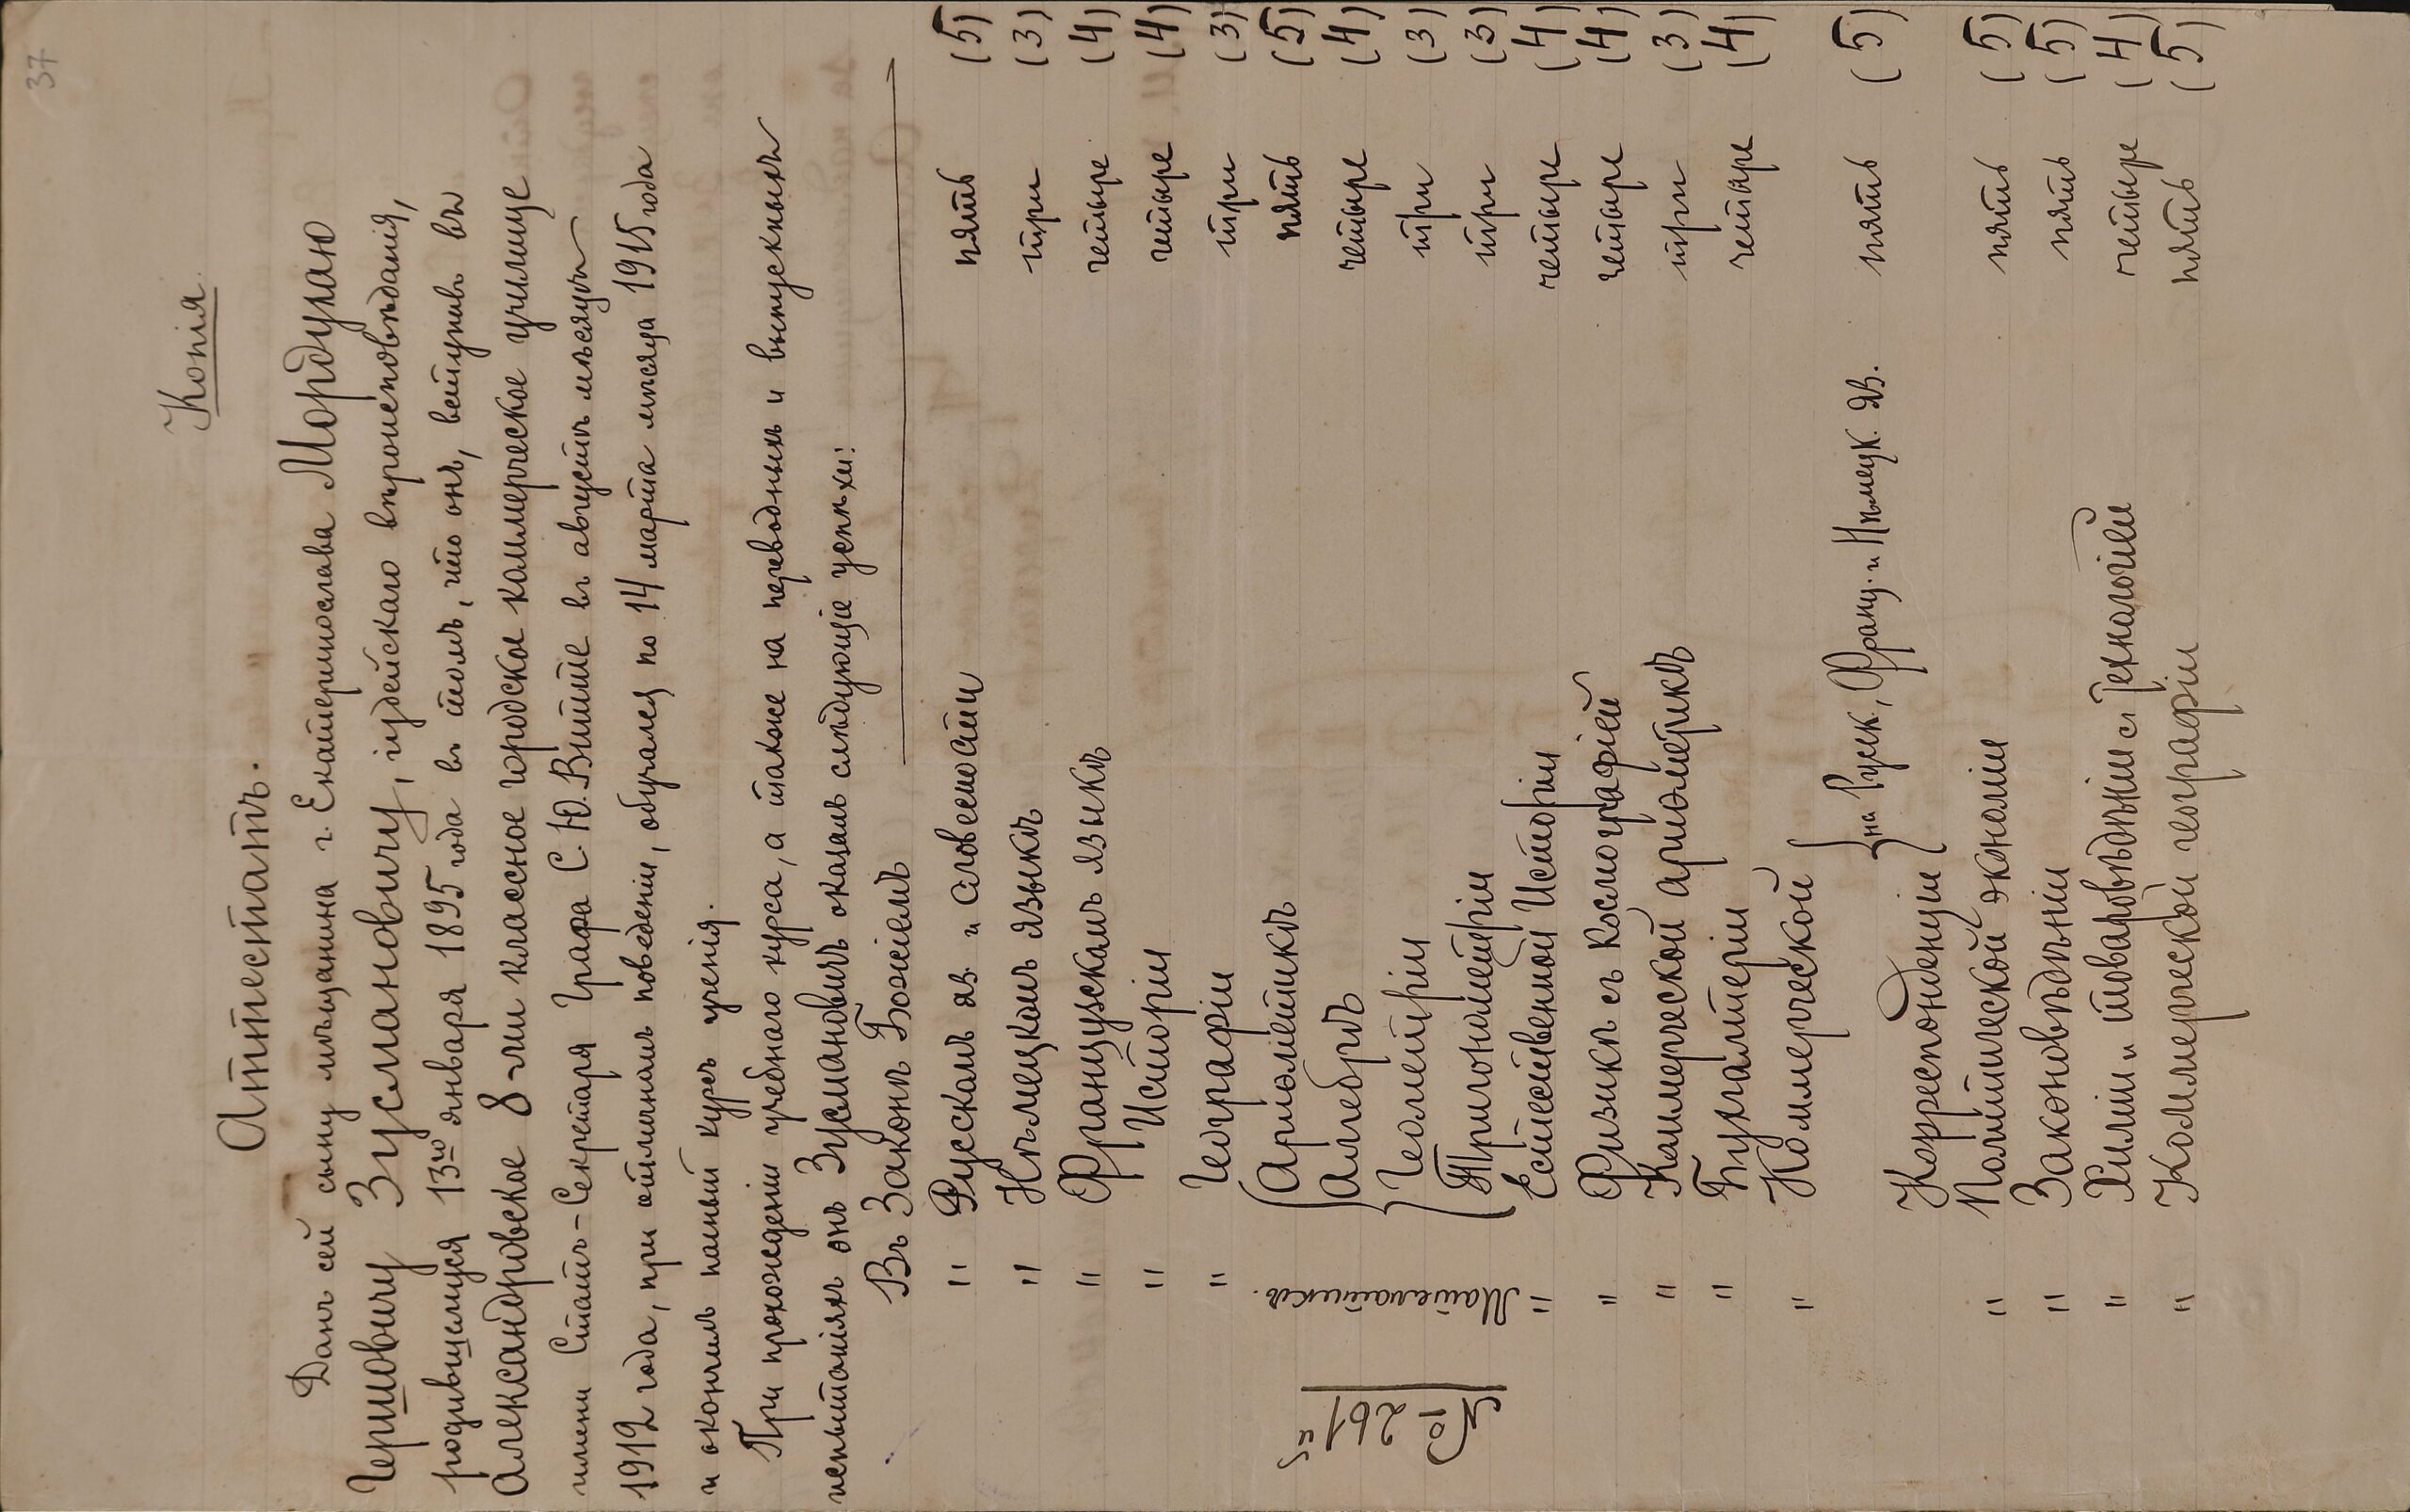 37
Копія
Аттестатъ.
Данъ сей сыну мѣщанина г. Екатеринослава Мордухаю
Гершовичу Зусмановичу, іудейскаго вѣроисповѣданія,
родившемуся 13го января 1895 года въ томъ, что онъ, вступивъ въ
Александровское 8-ми классное городское коммерческое училище
имени Статсъ-Секретаря Графа С. Ю. Витте въ августѣ мѣсяцѣ
1912 года, при отличномъ поведеніи, обучался по 14 марта мѣсяца 1915 года
и окончилъ полный курсъ ученія.
При прохожденіи учебнаго курса, а также на переводныхъ и выпускныхъ
испытаніяхъ онъ Зусмановичъ оказалъ слѣдующіе успѣхи:
Въ Законѣ Божіемъ пять (5)
" Русскомъ яз. и словесности три (3)
" Нѣмецкомъ языкѣ четыре (4)
" Французскомъ языкѣ четыре (4)
" Исторіи три (3)
" Географіи пять (5)
Математикѣ.
Ариѳметикѣ четыре (4)
Алгебрѣ три (3)
Геометріи три (3)
Тригонометріи четыре (4)
" Естественной Исторіи четыре (4)
" Физикѣ съ Космографіей три (3)
" Коммерческой ариѳметикѣ четыре (4)
" Бухгалтеріи
" Коммерческой
Корреспонденціи } на Русск., Франц. и Нѣмецк. яз. пять (5)
" Политической экономіи пять (5)
" Законовѣдѣніи пять (5)
" Химіи и товаровѣдѣніи съ Технологіей четыре (4)
" Коммерческой географіи пять (5)
261